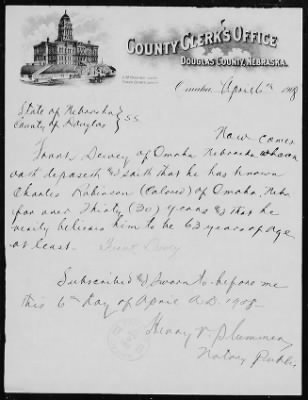 COUNTY CLERK'S OFFICE
DOUGLAS COUNTY, NEBRASKA.
Omaha, April 6th 1908
State of Nebraska } S.S.
County of Douglas
Now comes
Frank Dewey of Omaha Nebraska who on
oath deposeth & saith that he has known
Charles Robinson (Colored) of Omaha, Neb
for over Thirty (30) years & that he
verily believes him to be 63 years of age
at least. Frank Dewey
Subscribed & Sworn to before me
this 6th day of April A.D. 1908-
Henry V. Plummer
Notary Public